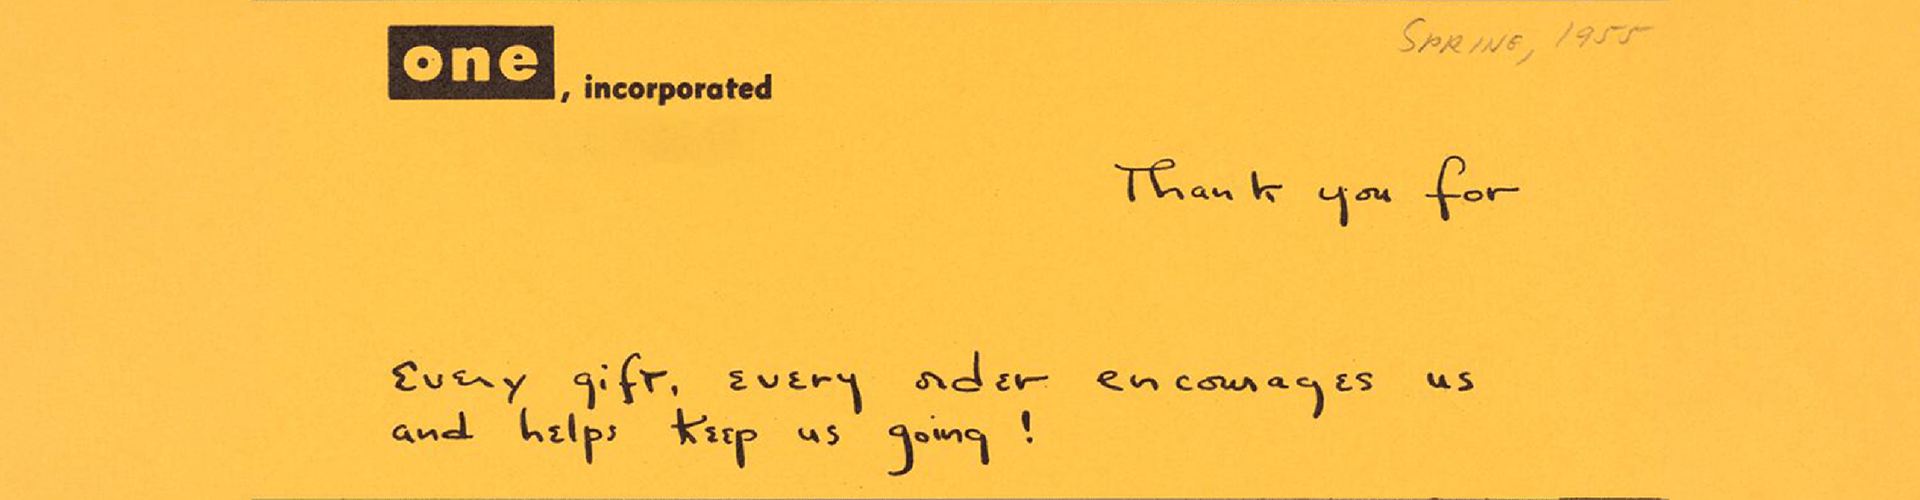 one, incorporated
SPRING, 1955
Thank you for
Every gift, every order encourages us
and helps keep us going!